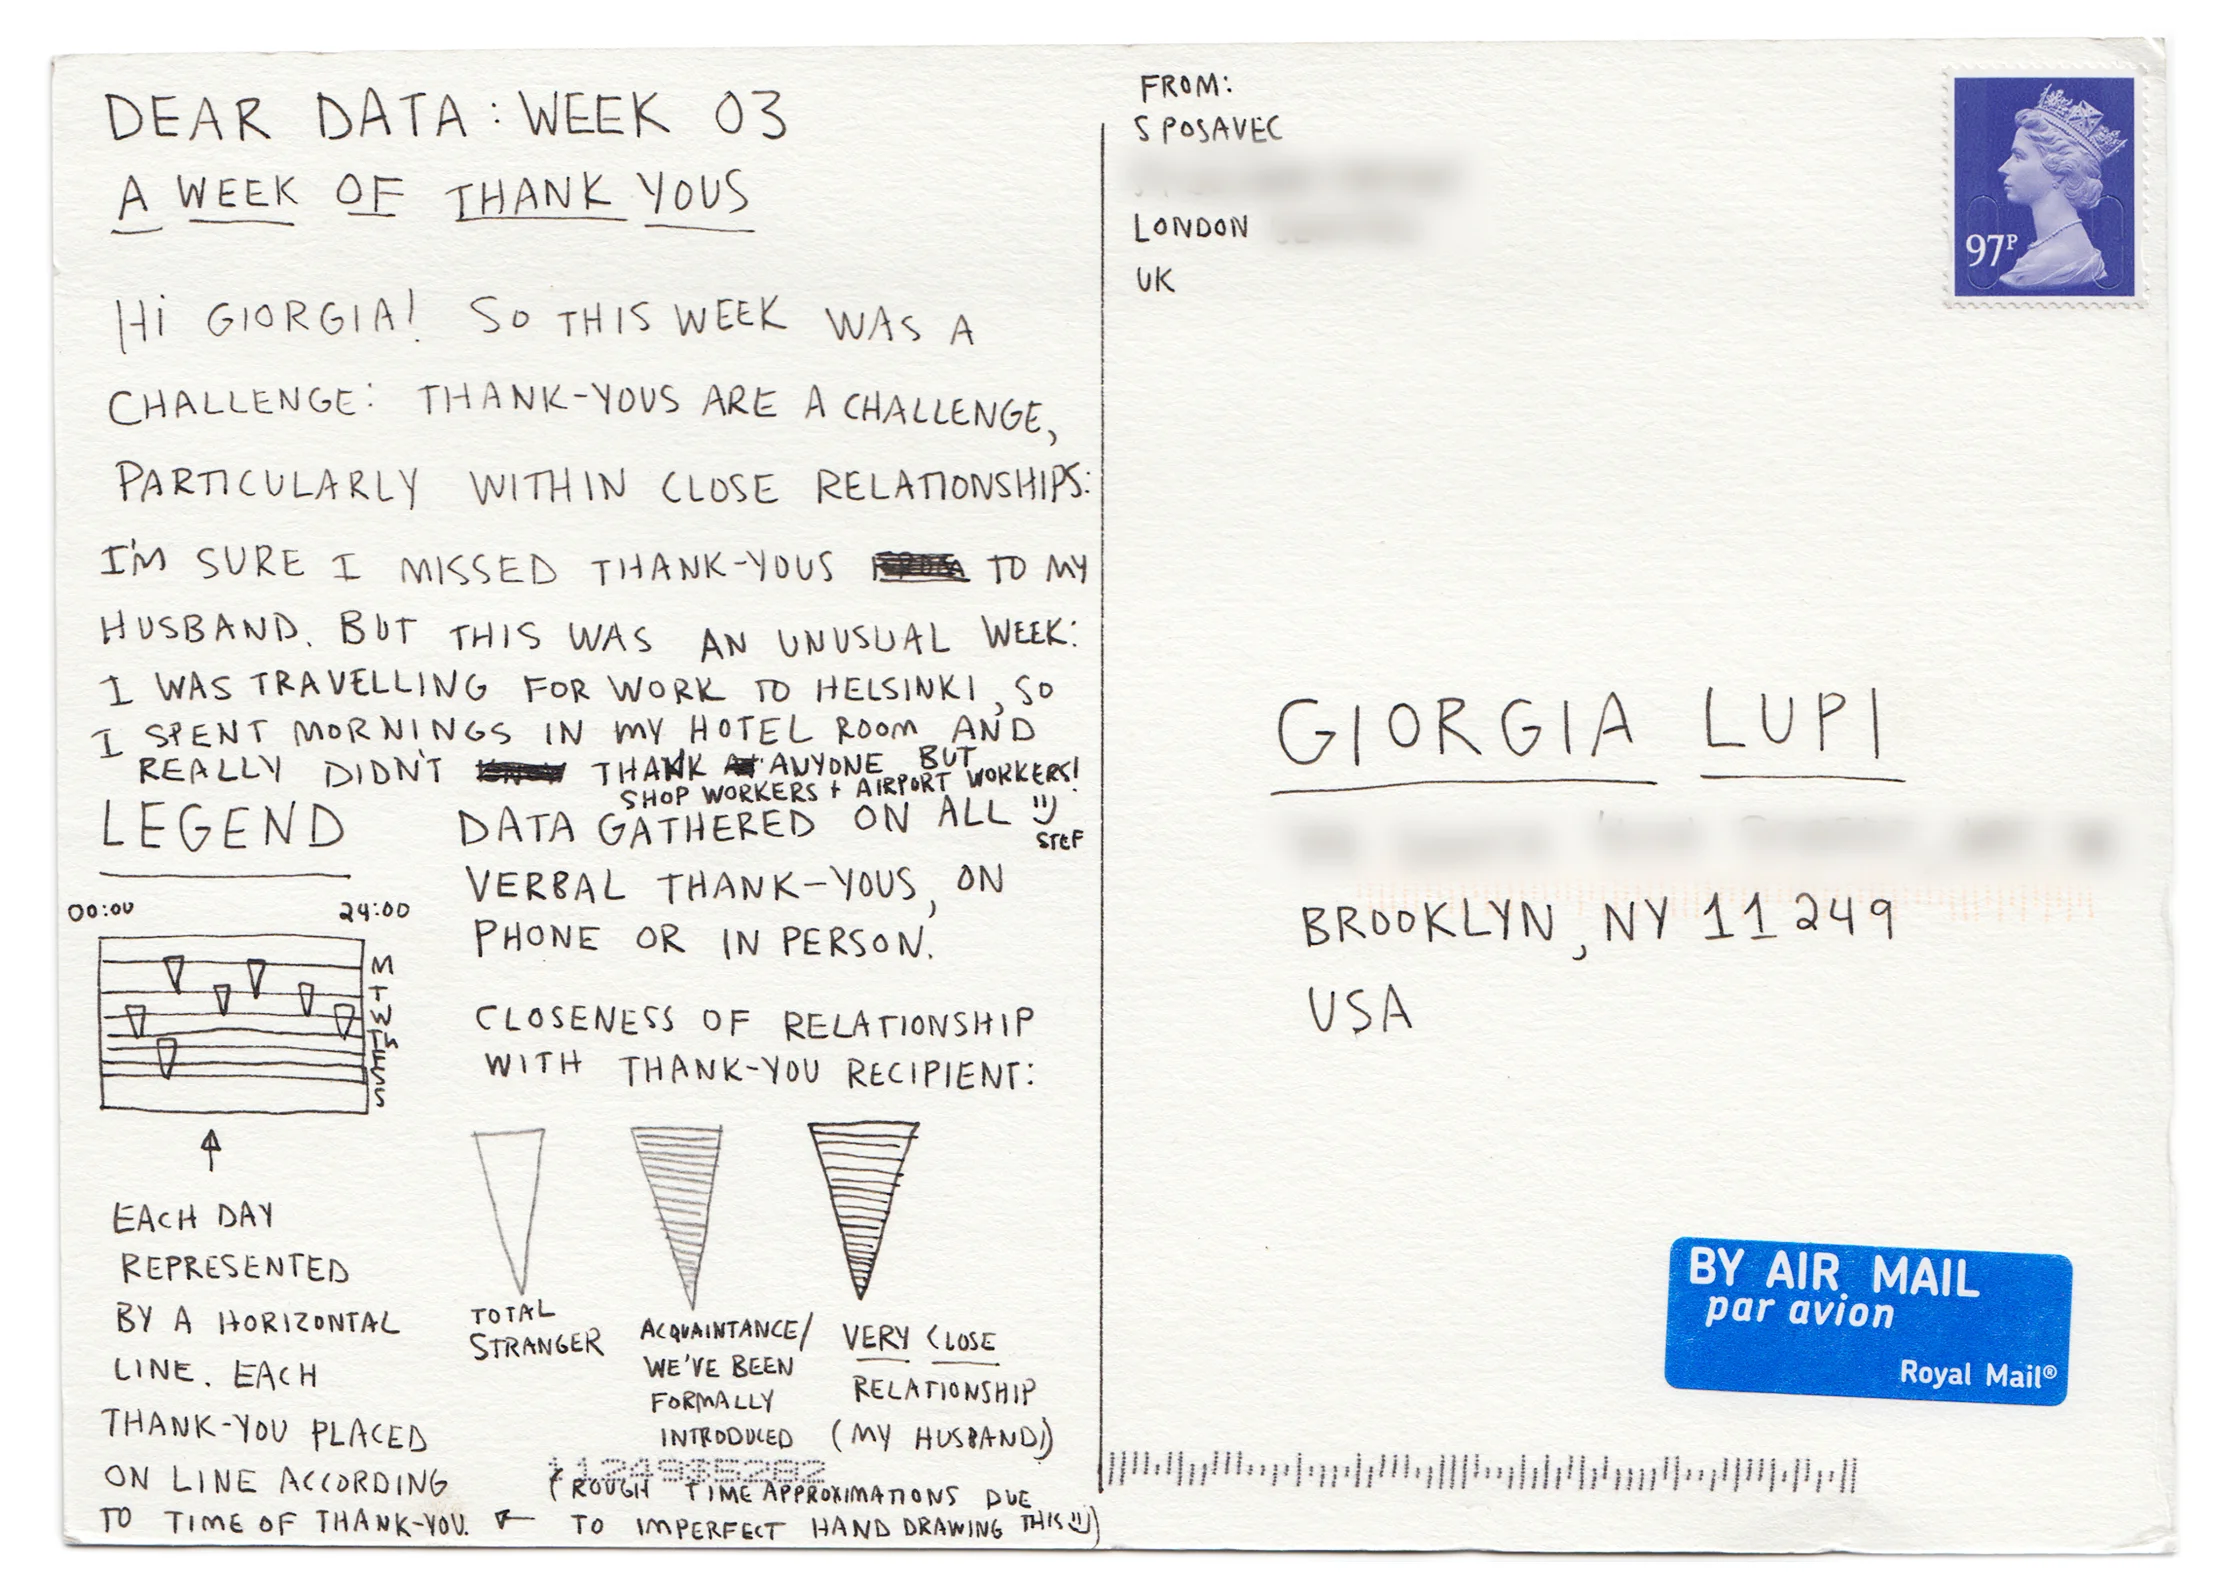 DEAR DATA: WEEK 03
A WEEK OF THANK YOUS
Hi GIORGIA! SO THIS WEEK WAS A
CHALLENGE: THANK-YOUS ARE A CHALLENGE,
PARTICULARLY WITHIN CLOSE RELATIONSHIPS:
I'M SURE I MISSED THANK-YOUS TO MY
HUSBAND. BUT THIS WAS AN UNUSUAL WEEK:
I WAS TRAVELLING FOR WORK TO HELSINKI, SO
I SPENT MORNINGS IN MY HOTEL ROOM AND
REALLY DIDN'T THANK ANYONE BUT
SHOP WORKERS + AIRPORT WORKERS!
STEF
LEGEND
00:00 24:00
M
T
W
TH
F
S
S
EACH DAY
REPRESENTED
BY A HORIZONTAL
LINE. EACH
THANK-YOU PLACED
ON LINE ACCORDING
TO TIME OF THANK-YOU.
DATA GATHERED ON ALL
VERBAL THANK-YOUS, ON
PHONE OR IN PERSON.
CLOSENESS OF RELATIONSHIP
WITH THANK-YOU RECIPIENT:
TOTAL
STRANGER
ACQUAINTANCE/
WE'VE BEEN
FORMALLY
INTRODUCED
VERY CLOSE
RELATIONSHIP
(MY HUSBAND)
(ROUGH TIME APPROXIMATIONS DUE
TO IMPERFECT HAND DRAWING THIS)
FROM:
S POSAVEC
LONDON
UK
97P
GIORGIA LUPI
BROOKLYN, NY 11249
USA
BY AIR MAIL
par avion
Royal Mail®